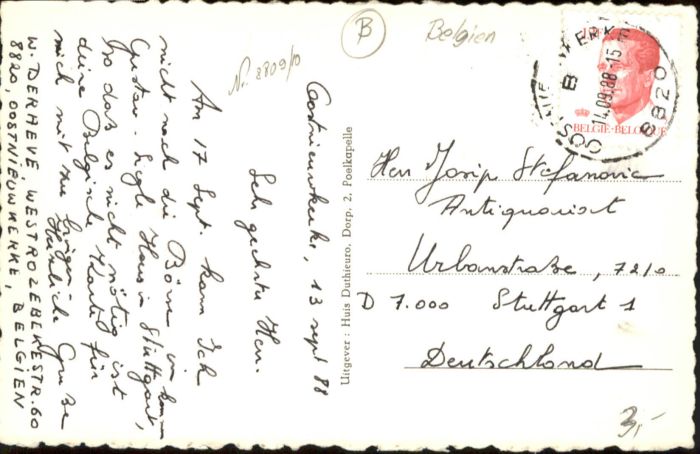 B
Belgien
N. 8809/0
Oostnieuwkerke, 13 sept 88
Sehr geehrter Herr.
An 17 Sept. kann Ich
nicht nach die Börse in
Gustav-Siegle Haus in Stuttgart,
so das es nicht nötig ist
deine Belgische Karte für
mich mit zu bringen
Herzliche Grüsse
W. DERHEVE WESTROZEBEKESTR. 60
8820, OOSTNIEUWKERKE, BELGIEN
Uitgever : Huis Duthieuro, Dorp, 2, Poelkapelle
14.09.88-15
B 8820
BELGIE-BELGIQUE
Herr Josip Stefanovic
Antiquariat
Urbanstraße, 72/0
D 7.000 Stuttgart 1
Deutschland
3,-